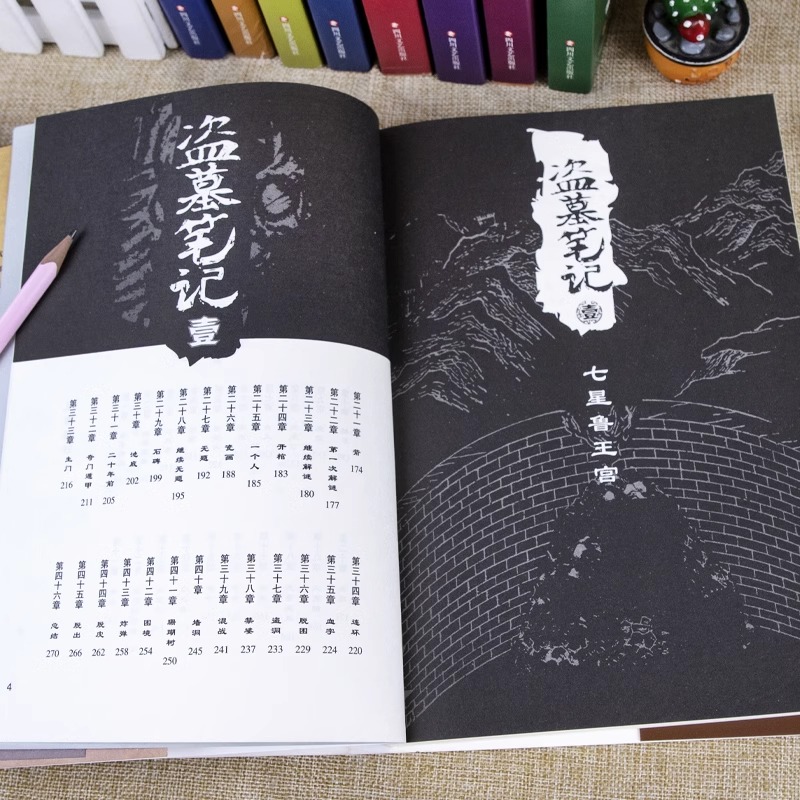 盗墓笔记
壹
第二十一章 箭 174
第二十二章 第一次解谜 177
第二十三章 继续解谜 180
第二十四章 开棺 183
第二十五章 一个人 185
第二十六章 瓷画 188
第二十七章 无题 192
第二十八章 继续无题 195
第二十九章 石碑 199
第三十章 池底 202
第三十一章 二十年前 205
第三十二章 奇门遁甲 211
第三十三章 生门 216
第三十四章 连环 220
第三十五章 血字 224
第三十六章 脱困 229
第三十七章 盗洞 233
第三十八章 禁婆 237
第三十九章 混战 241
第四十章 墙洞 245
第四十一章 珊瑚树 250
第四十二章 困境 254
第四十三章 炸弹 258
第四十四章 脱皮 262
第四十五章 脱出 266
第四十六章 总结 270
4
盗墓笔记
壹
七星鲁王宫
四川文艺出版社
四川文艺出版社
四川文艺出版社
四川文艺出版社
四川文艺出版社
四川文艺出版社
四川文艺出版社